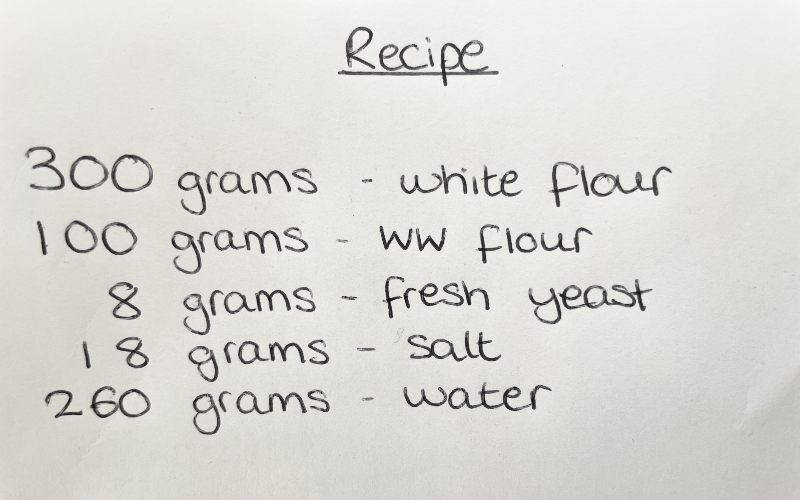 Recipe
300 grams - white flour
100 grams - WW flour
8 grams - fresh yeast
18 grams - salt
260 grams - water